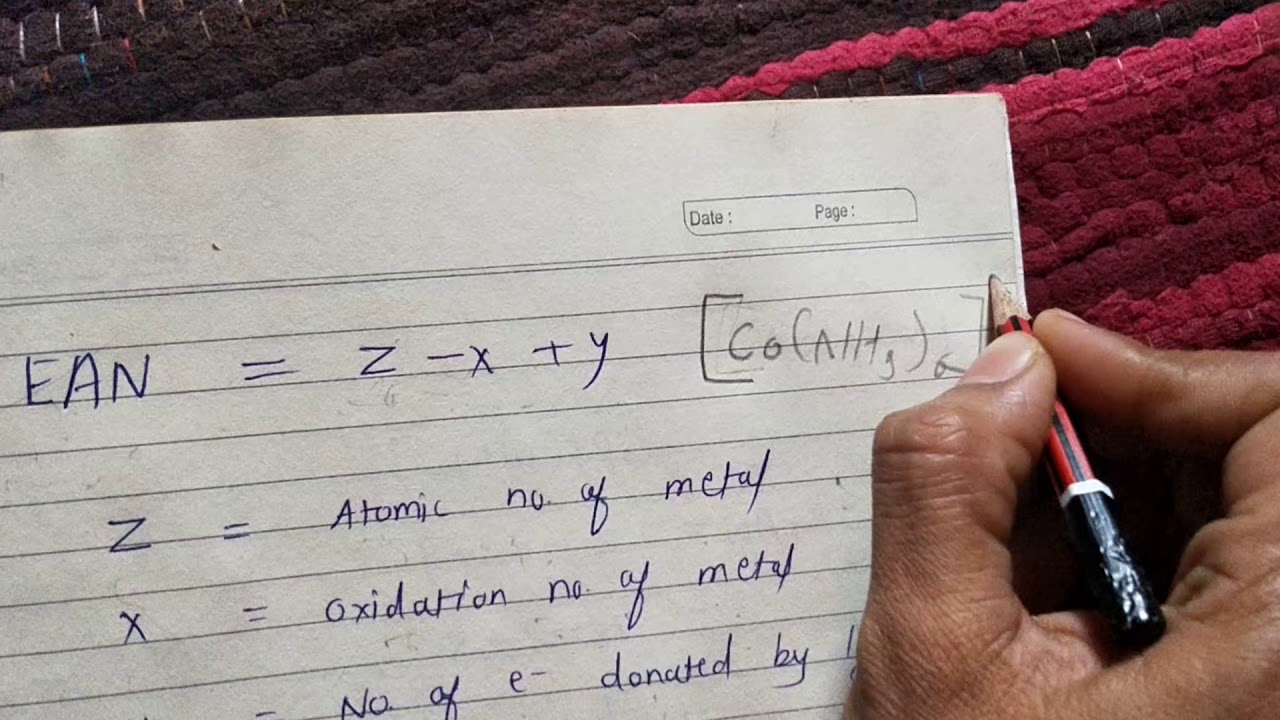 Date : Page :
EAN = Z - x + y [Co(NH3)6]
Z = Atomic no. of metal
x = oxidation no. of metal
= No. of e- donated by